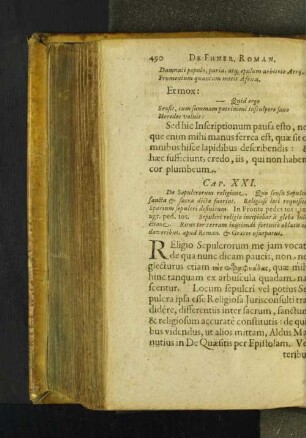 490 DE FUNER. ROMAN.
Damnati populo, paria, atq; epulum arbitrio Arrj,
Frumentum quantum metit Africa.
Et mox:
— Quid ergo
Sensit, cum summam patrimoni insculpere saxo
Heredes voluit:
Sed hic Inscriptionum pausa esto, ne
que enim mihi manus ferrea est, quæ sit
minibus hisce lapidibus describendis:
hæc sufficiunt, credo, iis, qui non haben
cor plumbeum.
CAP. XXI.
De Sepulcrorum religione. Quo sensu Sepulcr
sancta & sacra dicta fuerint. Religiosi loci requisit
spatium sepulcri destinatum. In Fronte pedes tot, in
agr. ped. tot. Sepulcri religio incipiebat à gleba
RELigio Sepulcrorum me jam vocat
de qua nunc dicam paucis, non, ne
glecturus etiam quæ
hinc tanquam ex arbuscula quadam, nas
scentur. Locum sepulcri vel potius S
pulcra ipsa esse Religiosa Jurisconsulti tra
didére, differentiis inter sacrum, sanctum
& religiosum accuratè constitutis: de qui
bus videndus, ut alios mittam, Aldus Ma
nutius in De Quæsitis per Epistolam. Ve
teribus